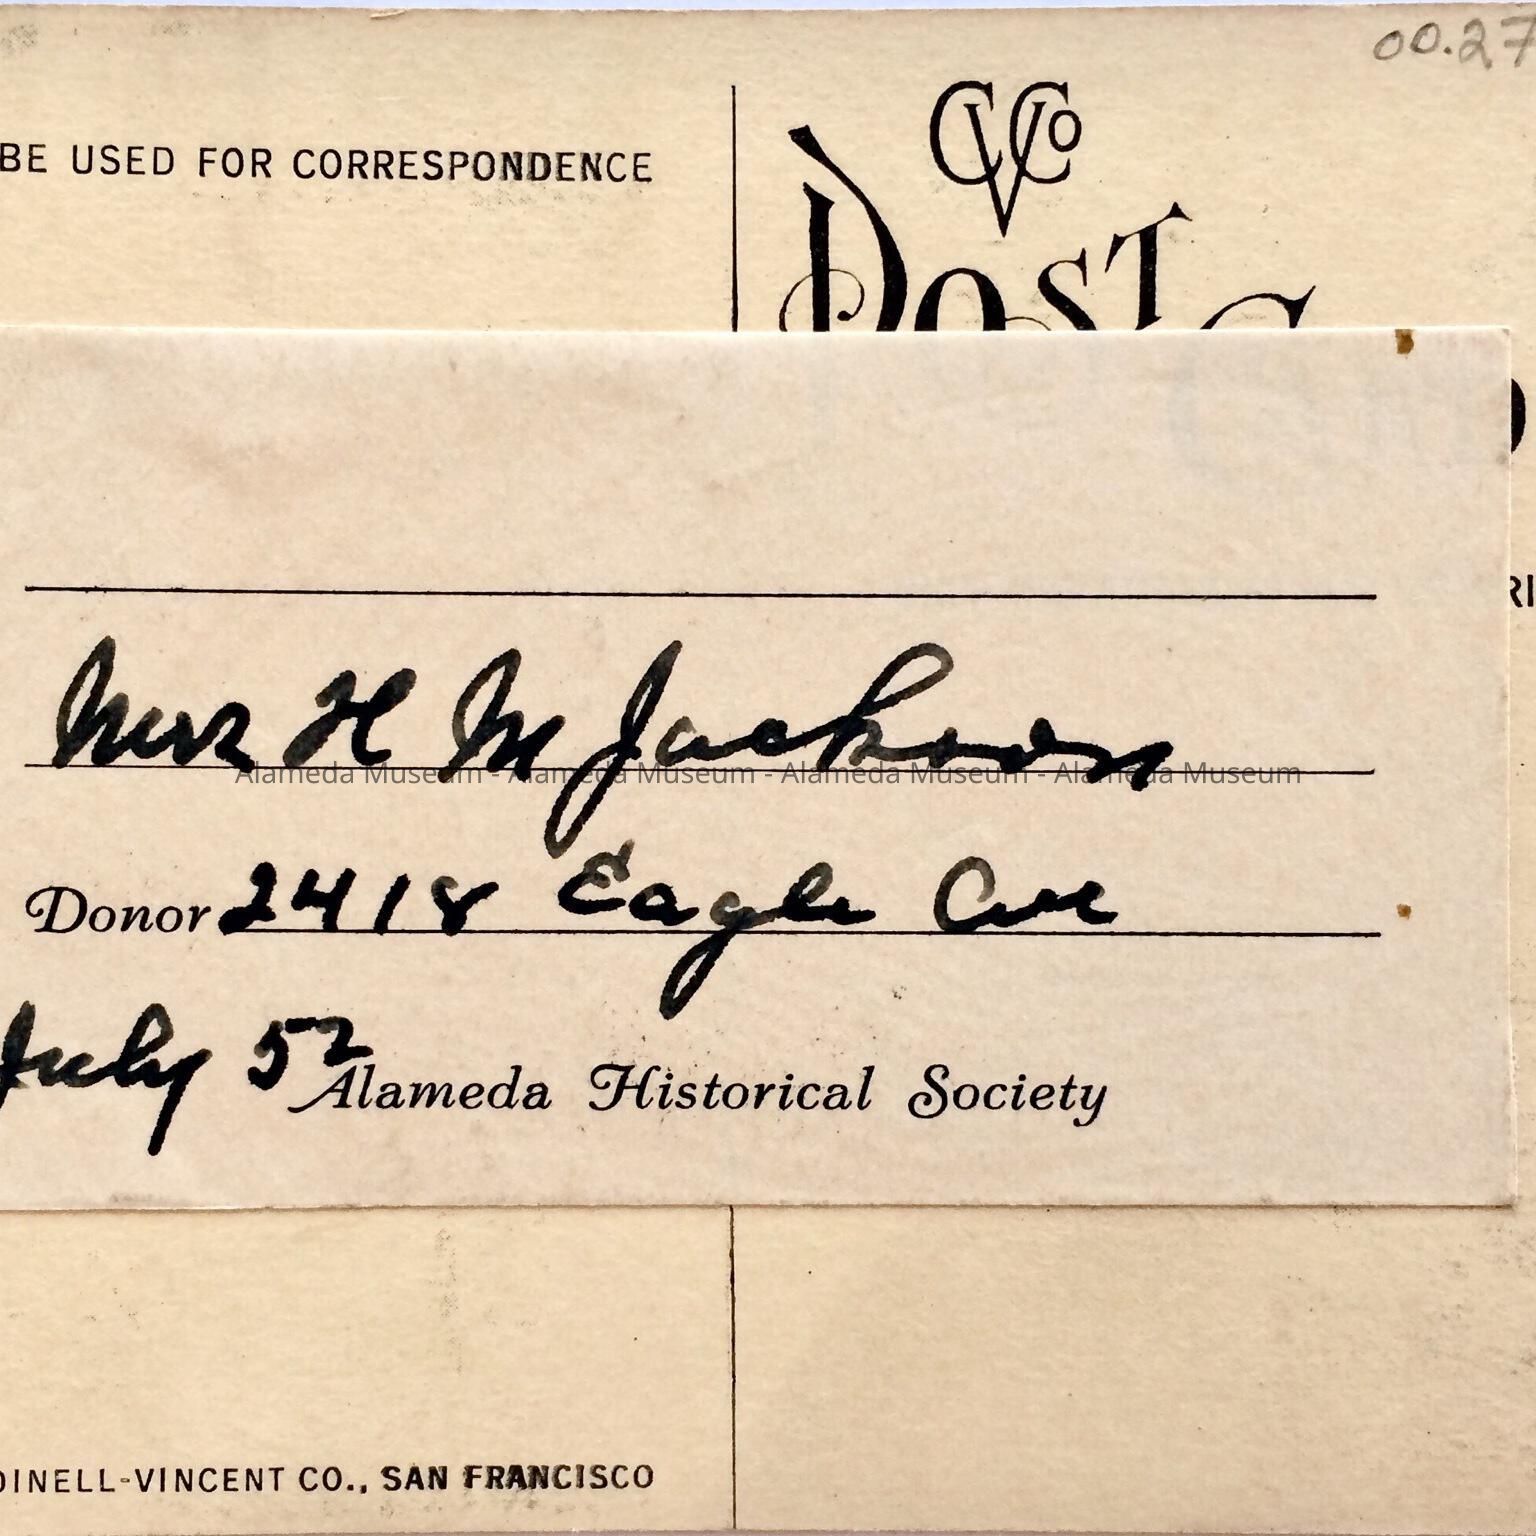 00.27
BE USED FOR CORRESPONDENCE
CVCo
POST
RI
Mrs H M Jackson
Alameda Museum - Alameda Museum - Alameda Museum - Alameda Museum
Donor 2418 Eagle Ave
July 52
Alameda Historical Society
DINELL-VINCENT CO., SAN FRANCISCO